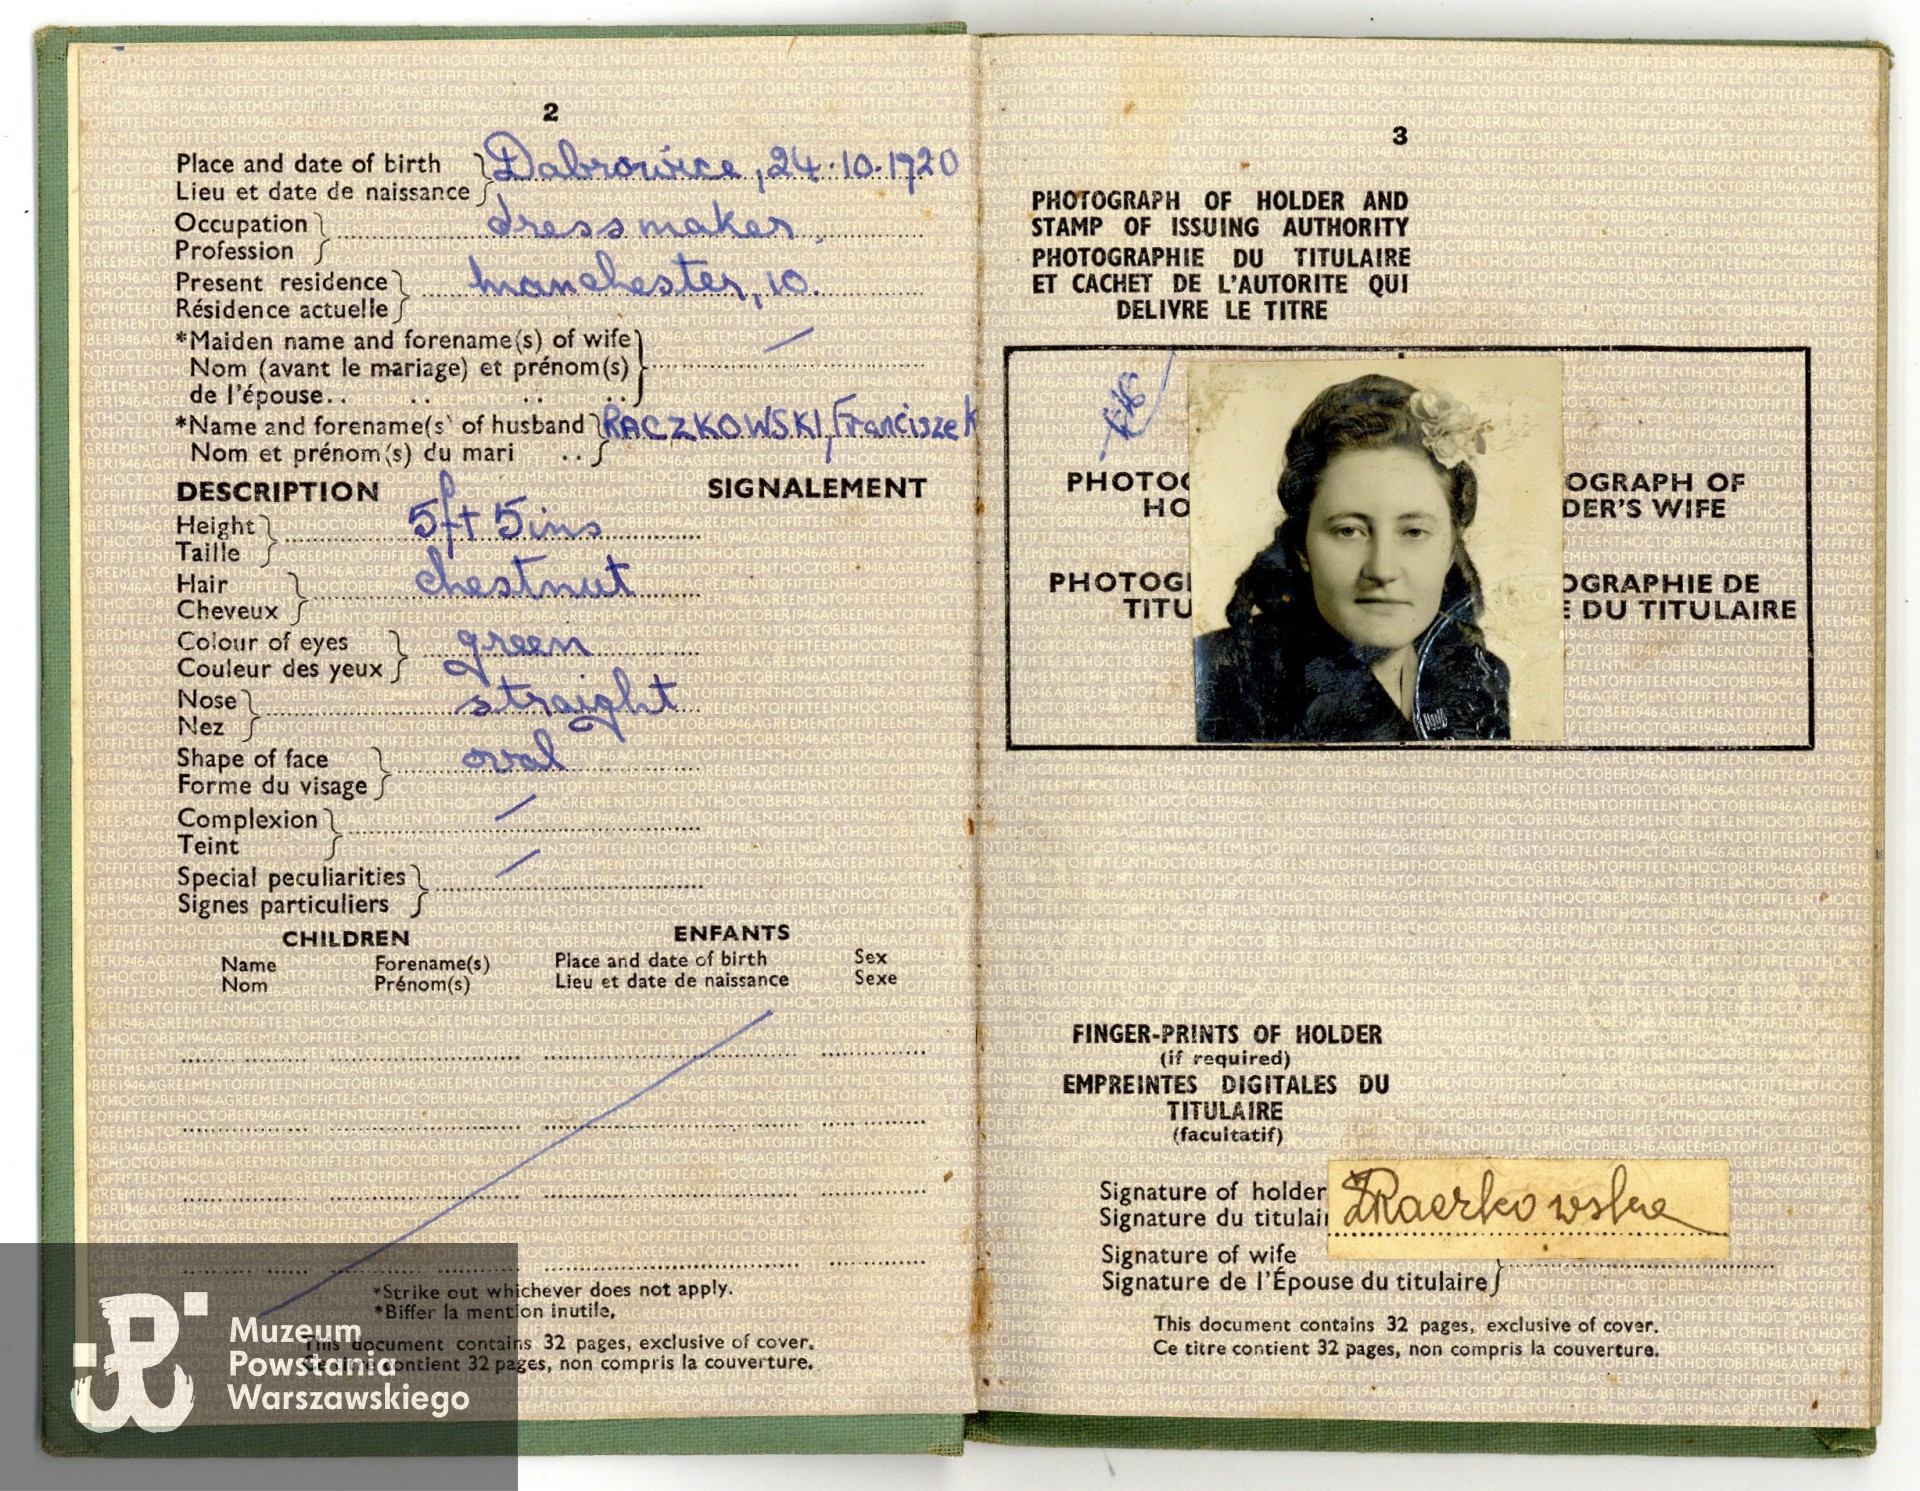 2
Place and date of birth } Dabrowice, 24.10.1920
Lieu et date de naissance
Occupation } dressmaker,
Profession
Present residence } Manchester, 10.
Résidence actuelle
*Maiden name and forename(s) of wife } /
Nom (avant le mariage) et prénom(s)
de l'épouse.. .. .. ..
*Name and forename(s) of husband } RACZKOWSKI, Franciszek
Nom et prénom(s) du mari ..
DESCRIPTION SIGNALEMENT
Height } 5ft 5ins
Taille
Hair } chestnut
Cheveux
Colour of eyes } green
Couleur des yeux
Nose } straight
Nez
Shape of face } oval
Forme du visage
Complexion } /
Teint
Special peculiarities } /
Signes particuliers
CHILDREN ENFANTS
Name Forename(s) Place and date of birth Sex
Nom Prénom(s) Lieu et date de naissance Sexe
*Strike out whichever does not apply.
*Biffer la mention inutile,
This document contains 32 pages, exclusive of cover.
contient 32 pages, non compris la couverture.
Muzeum
Powstania
Warszawskiego
3
PHOTOGRAPH OF HOLDER AND
STAMP OF ISSUING AUTHORITY
PHOTOGRAPHIE DU TITULAIRE
ET CACHET DE L'AUTORITE QUI
DELIVRE LE TITRE
PHOTOG OGRAPH OF
HO DER'S WIFE
PHOTOG OGRAPHIE DE
TITU E DU TITULAIRE
FINGER-PRINTS OF HOLDER
(if required)
EMPREINTES DIGITALES DU
TITULAIRE
(facultatif)
Signature of holder
Signature du titulair
Raczkowska
Signature of wife
Signature de l'Épouse du titulaire }
This document contains 32 pages, exclusive of cover.
Ce titre contient 32 pages, non compris la couverture.